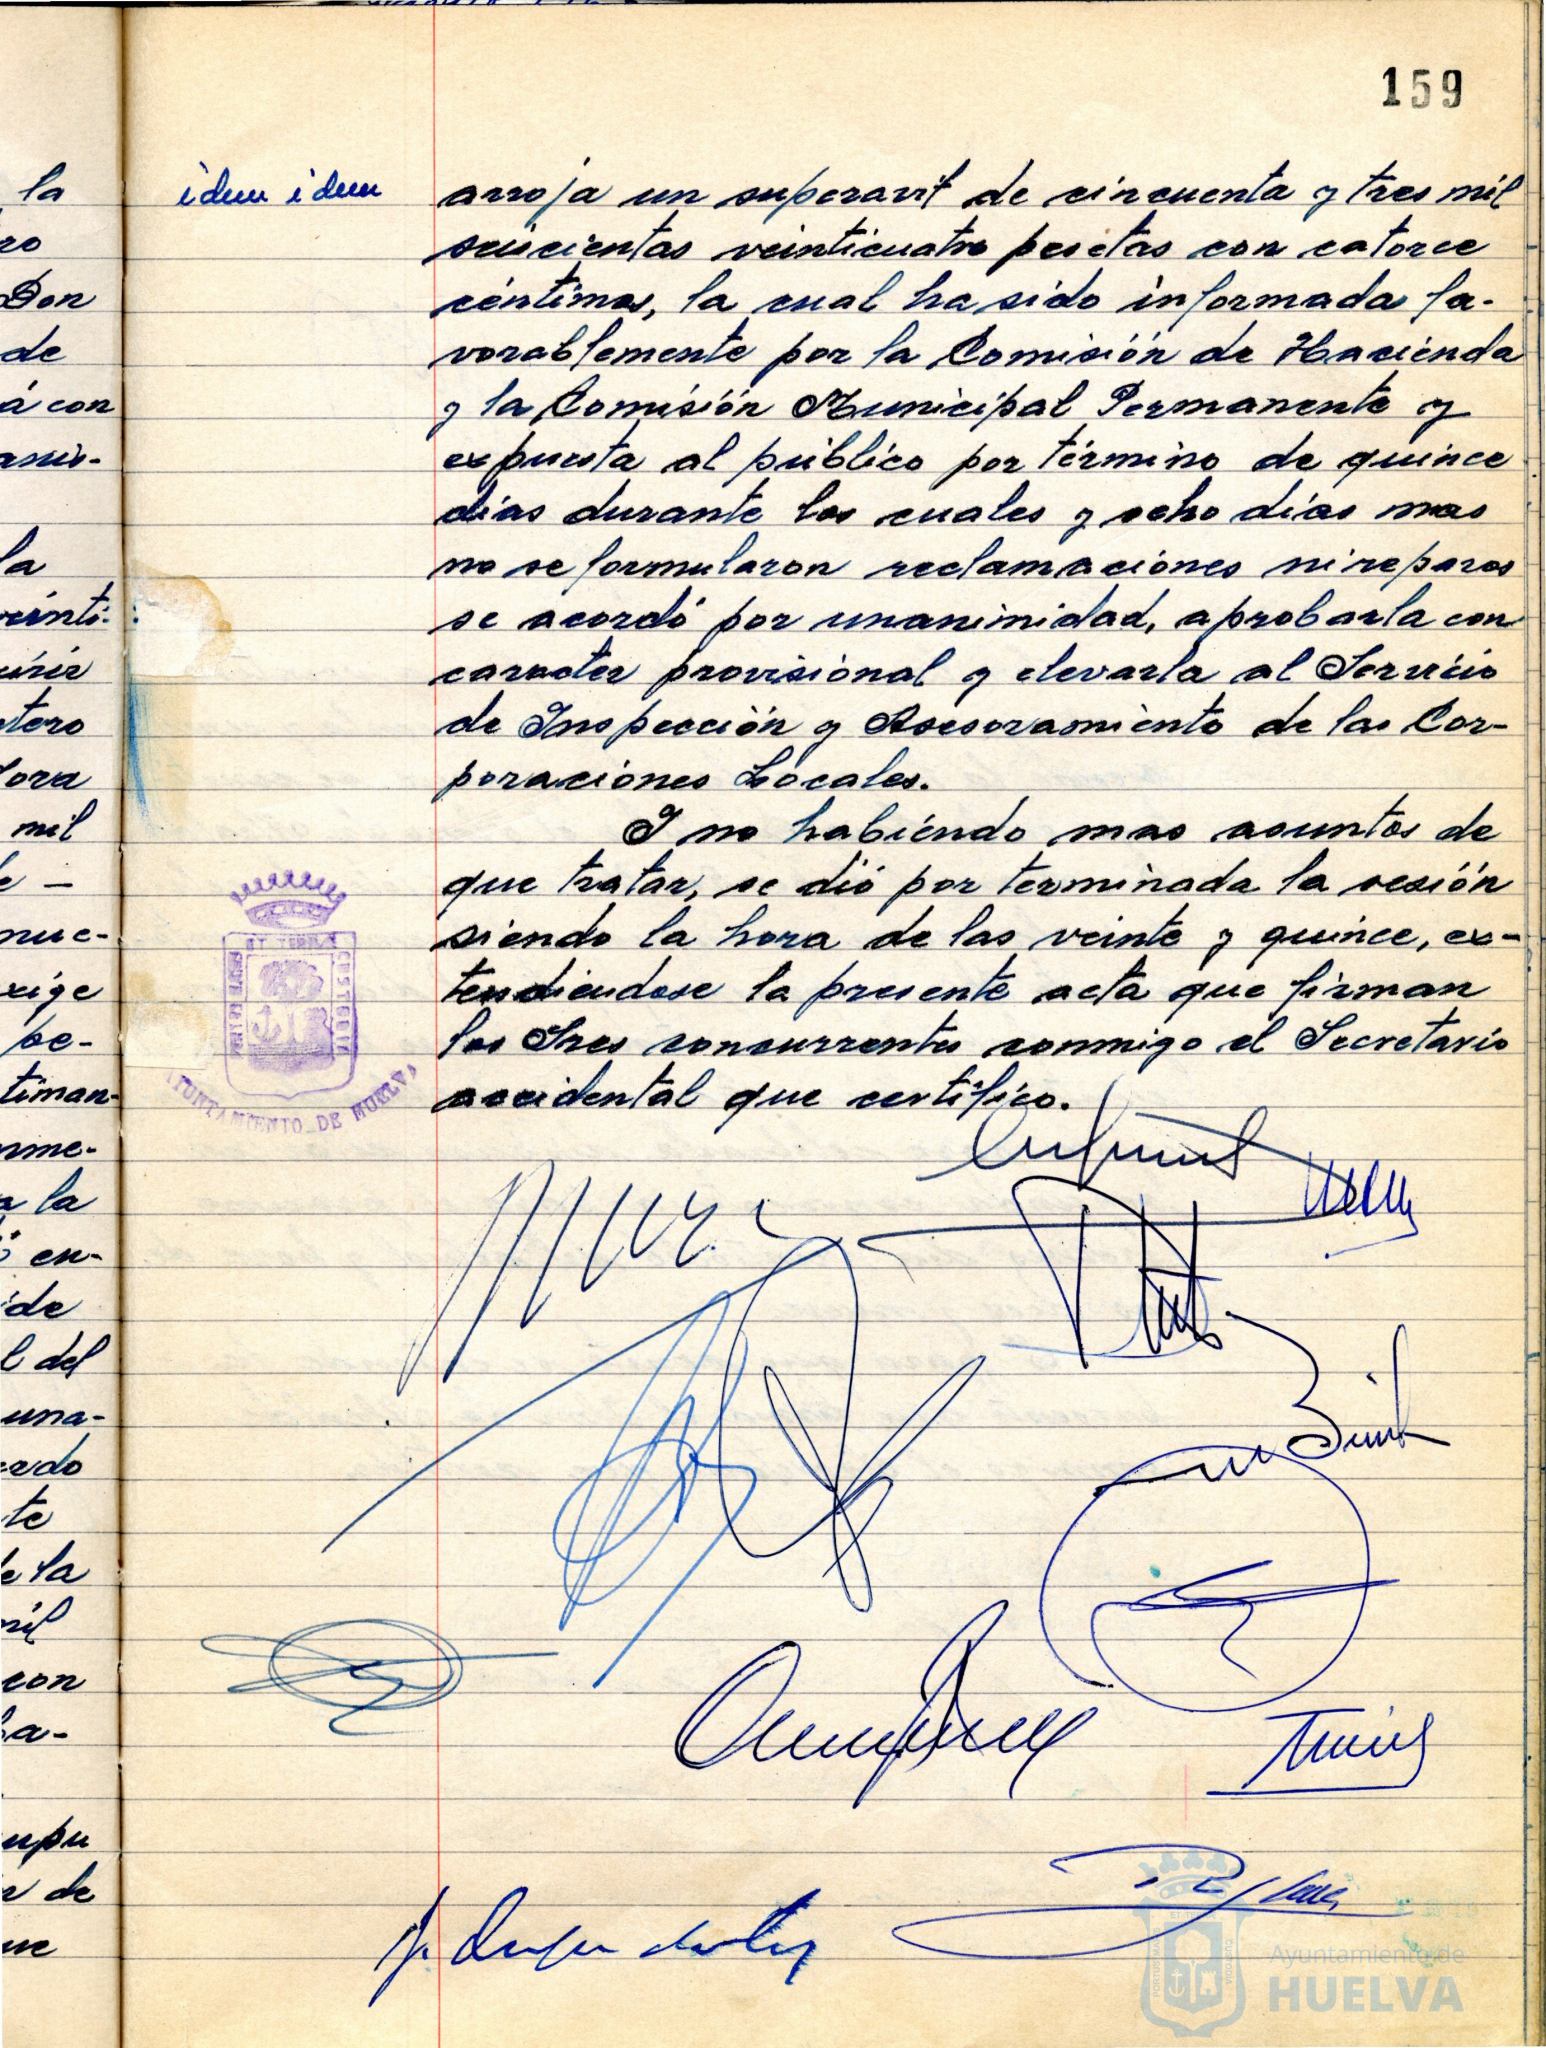 159
la
ro
Don
de
á con
la
veinti-
tero
ora
mil
nue-
xige
pe-
timan-
a la
en-
de
l del
una-
te
de la
mil
con
de
idem idem
arroja un superavit de cincuenta y tres mil
seiscientas veinticuatro pesetas con catorce
céntimos, la cual ha sido informada fa-
vorablemente por la Comisión de Hacienda
y la Comisión Municipal Permanente y
expuesta al público por término de quince
dias durante los cuales y ocho dias mas
no se formularon reclamaciones ni reparos
se acordó por unanimidad, aprobarla con
caracter provisional y elevarla al Servicio
de Inspección y Asesoramiento de las Cor-
poraciones Locales.
Y no habiendo mas asuntos de
que tratar, se dió por terminada la sesión
siendo la hora de las veinte y quince, ex-
tendiendose la presente acta que firman
los Sres concurrentes conmigo el Secretario
accidental que certifico.
PORTUS MARIS
ET TERRAE
CUSTODIA
AYUNTAMIENTO DE HUELVA
Ayuntamiento de
HUELVA